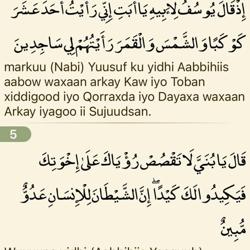 إِذْ قَالَ يُوسُفُ لِأَبِيهِ يَا أَبَتِ إِنِّي رَأَيْتُ أَحَدَ عَشَرَ
كَوْكَبًا وَالشَّمْسَ وَالْقَمَرَ رَأَيْتُهُمْ لِي سَاجِدِينَ
markuu (Nabi) Yuusuf ku yidhi Aabbihiis
aabow waxaan arkay Kaw iyo Toban
xiddigood iyo Qorraxda iyo Dayaxa waxaan
Arkay iyagoo ii Sujuudsan.
5
قَالَ يَا بُنَيَّ لَا تَقْصُصْ رُؤْيَاكَ عَلَىٰ إِخْوَتِكَ
فَيَكِيدُوا لَكَ كَيْدًا ۖ إِنَّ الشَّيْطَانَ لِلْإِنسَانِ عَدُوٌّ
مُّبِينٌ